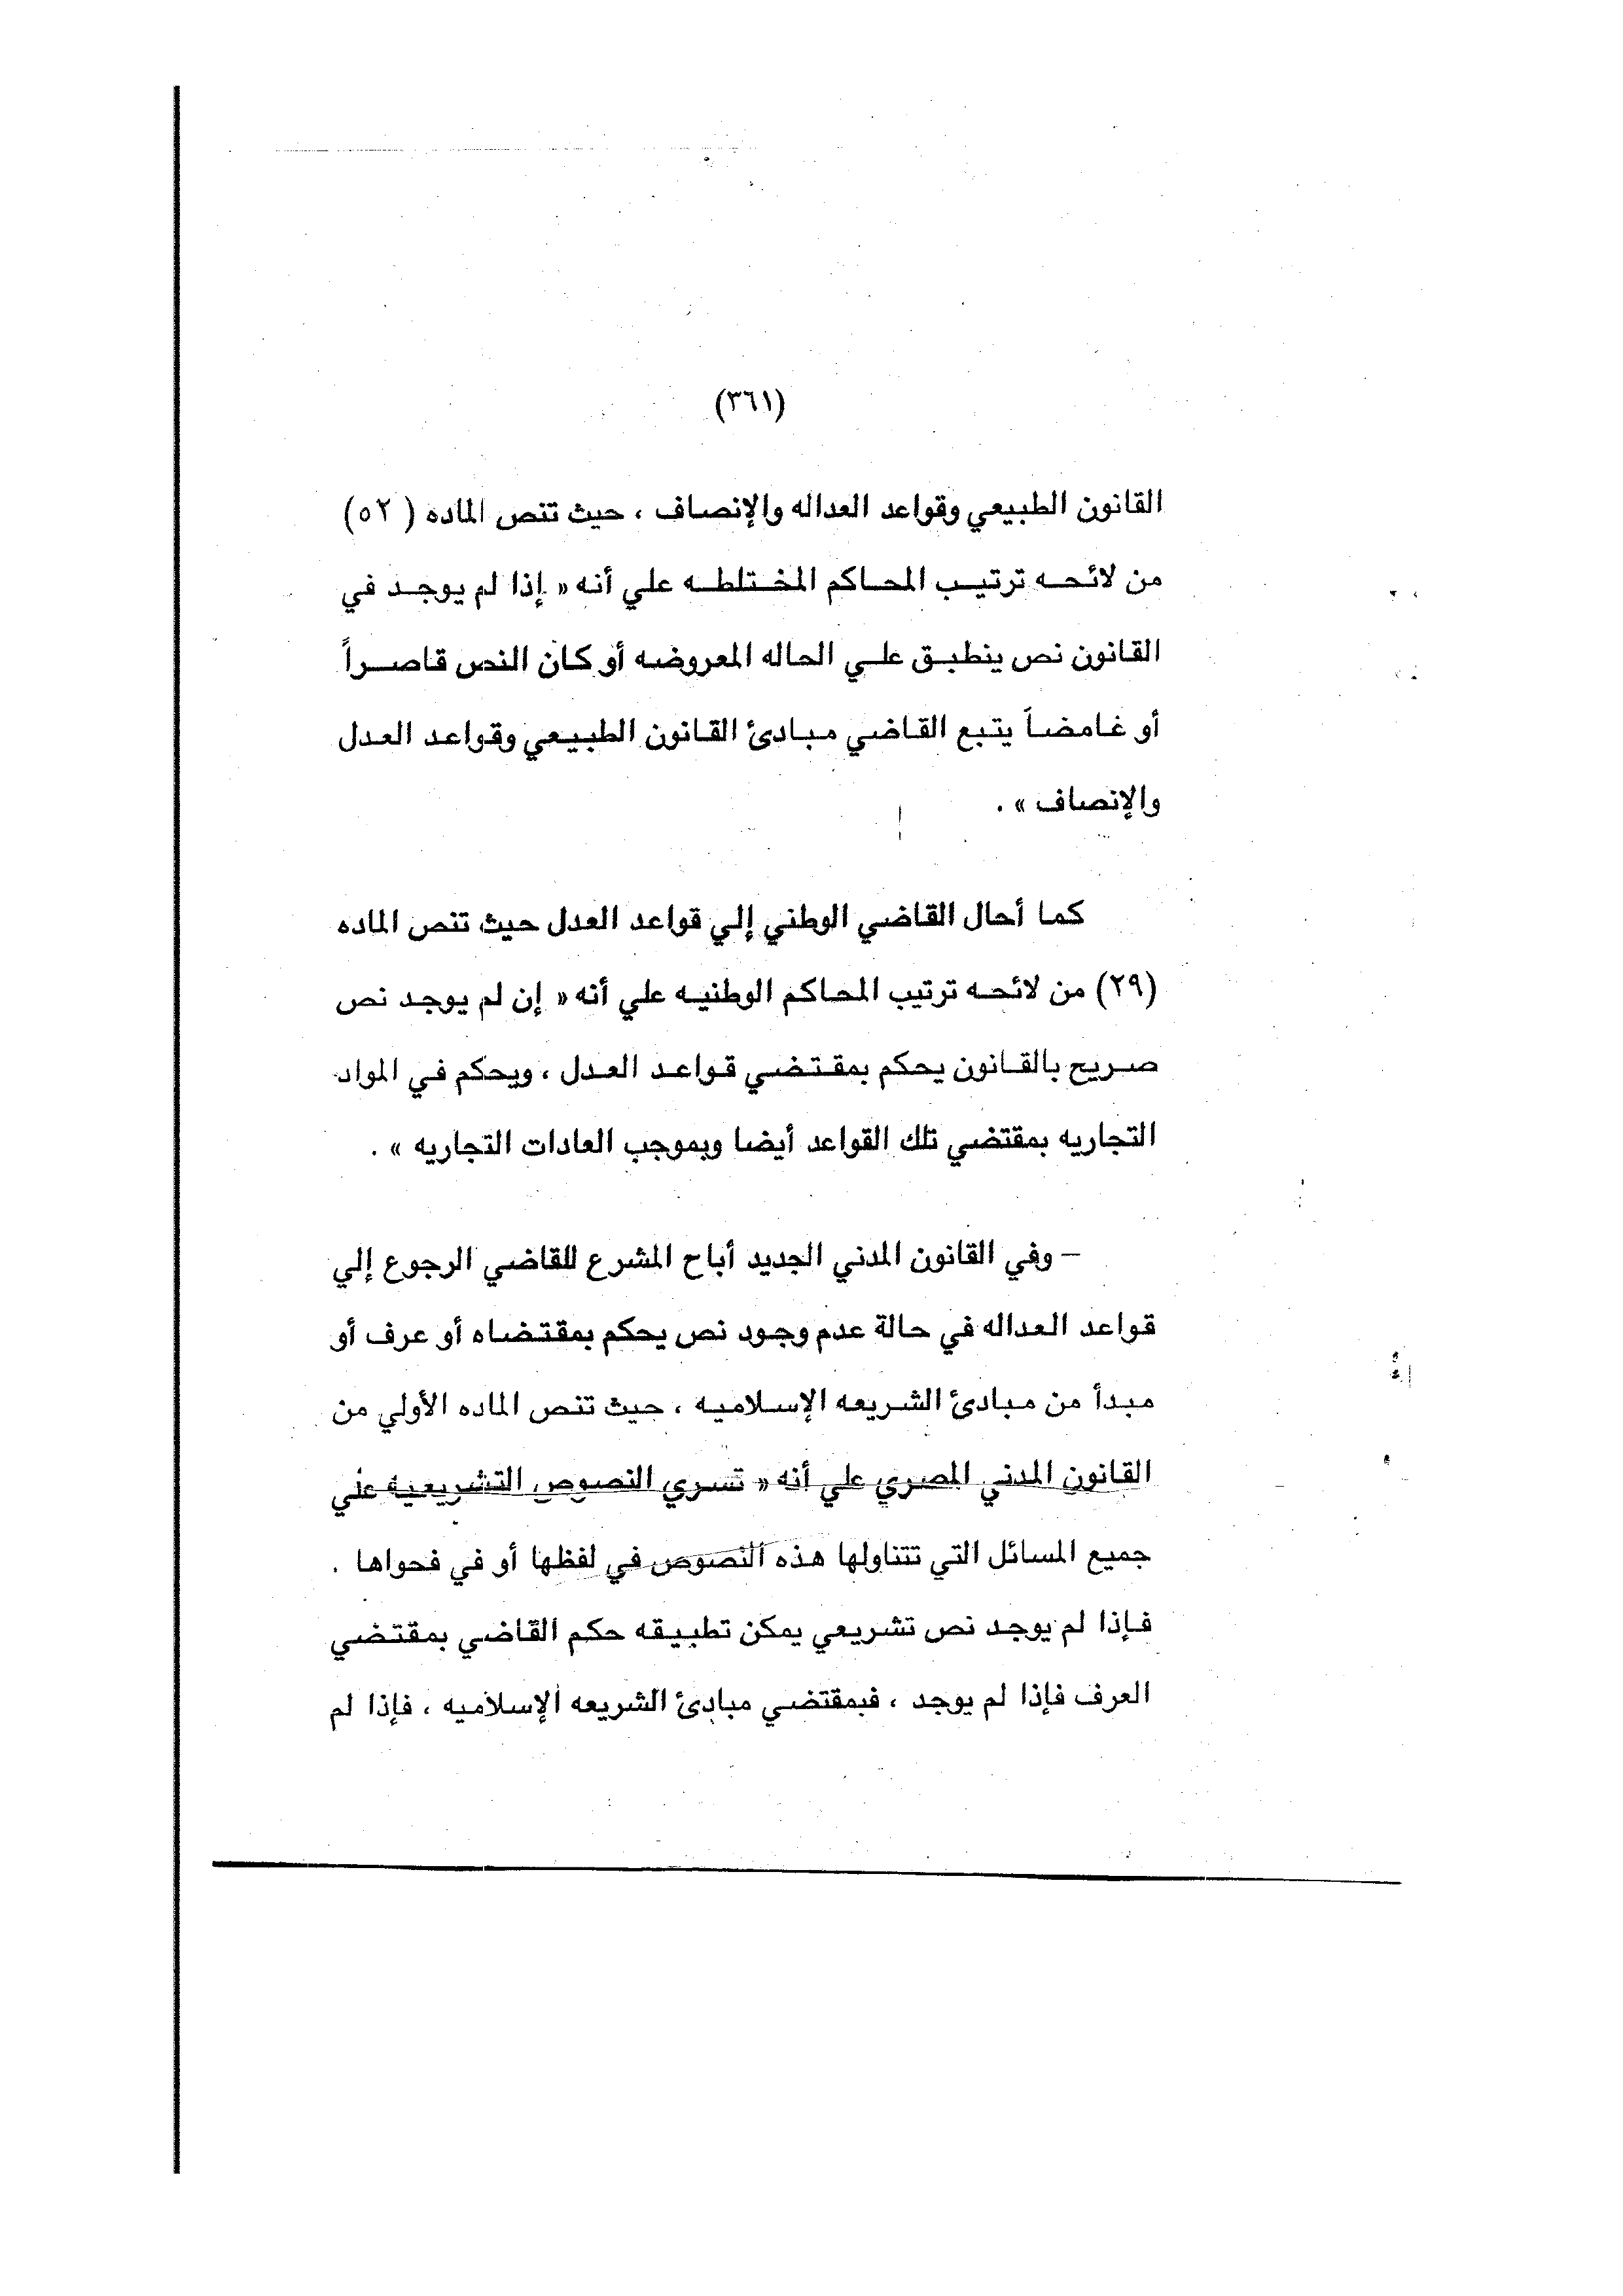 (٣٦١)
القانون الطبيعي وقواعد العداله والإنصاف ، حيث تنص الماده ( ٥٢)
من لائحه ترتيب المحاكم المختلطه علي أنه « إذا لم يوجد في
القانون نص ينطبق علي الحاله المعروضه أو كان النص قاصراً
أو غامضاً يتبع القاضي مبادئ القانون الطبيعي وقواعد العدل
والإنصاف » .
كما أحال القاضي الوطني إلي قواعد العدل حيث تنص الماده
(٢٩) من لائحه ترتيب المحاكم الوطنيه علي أنه « إن لم يوجد نص
صريح بالقانون يحكم بمقتضي قواعد العدل ، ويحكم في المواد
التجاريه بمقتضي تلك القواعد أيضا وبموجب العادات التجاريه » .
– وفي القانون المدني الجديد أباح المشرع للقاضي الرجوع إلي
قواعد العداله في حالة عدم وجود نص يحكم بمقتضاه أو عرف أو
مبدأ من مبادئ الشريعه الإسلاميه ، حيث تنص الماده الأولي من
القانون المدني المصري علي أنه « تسري النصوص التشريعيه علي
جميع المسائل التي تتناولها هذه النصوص في لفظها أو في فحواها .
فإذا لم يوجد نص تشريعي يمكن تطبيقه حكم القاضي بمقتضي
العرف فإذا لم يوجد ، فبمقتضي مبادئ الشريعه الإسلاميه ، فإذا لم